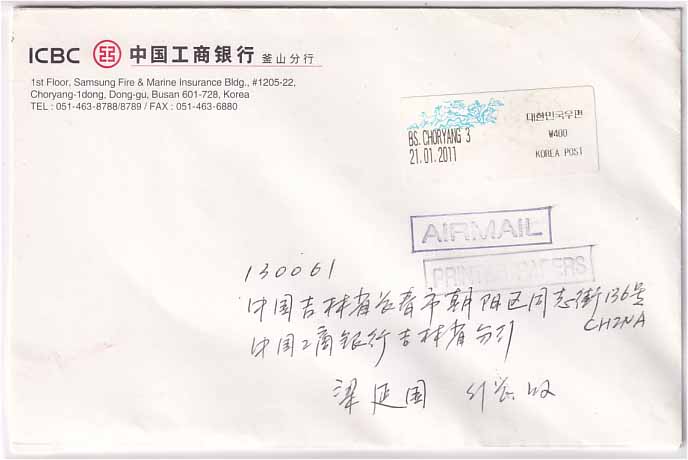 ICBC 中国工商银行 釜山分行
1st Floor, Samsung Fire & Marine Insurance Bldg., #1205-22,
Choryang-1dong, Dong-gu, Busan 601-728, Korea
TEL : 051-463-8788/8789 / FAX : 051-463-6880
대한민국우편
BS. CHORYANG 3 ₩400
21.01.2011 KOREA POST
AIRMAIL
PRINTED PAPERS
130061
中国吉林省长春市朝阳区同志街136号
CHINA
中国工商银行吉林省分行
梁延国 行长 收